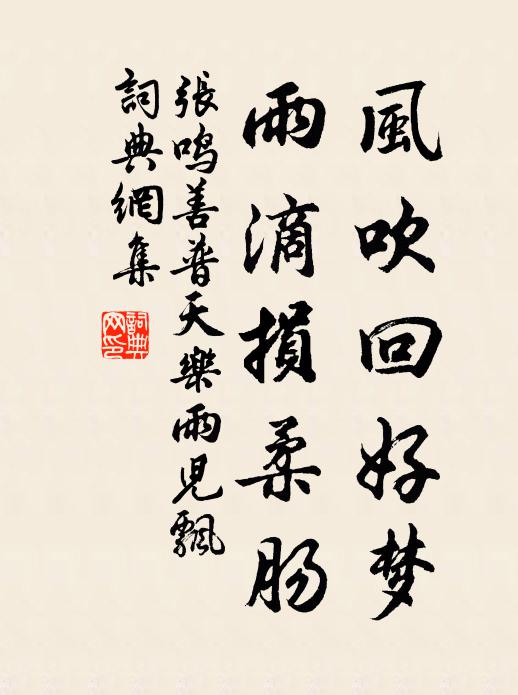 風吹回好梦
雨滴損柔肠
張鸣善普天樂雨児飄
詞典網集
詞典
网印